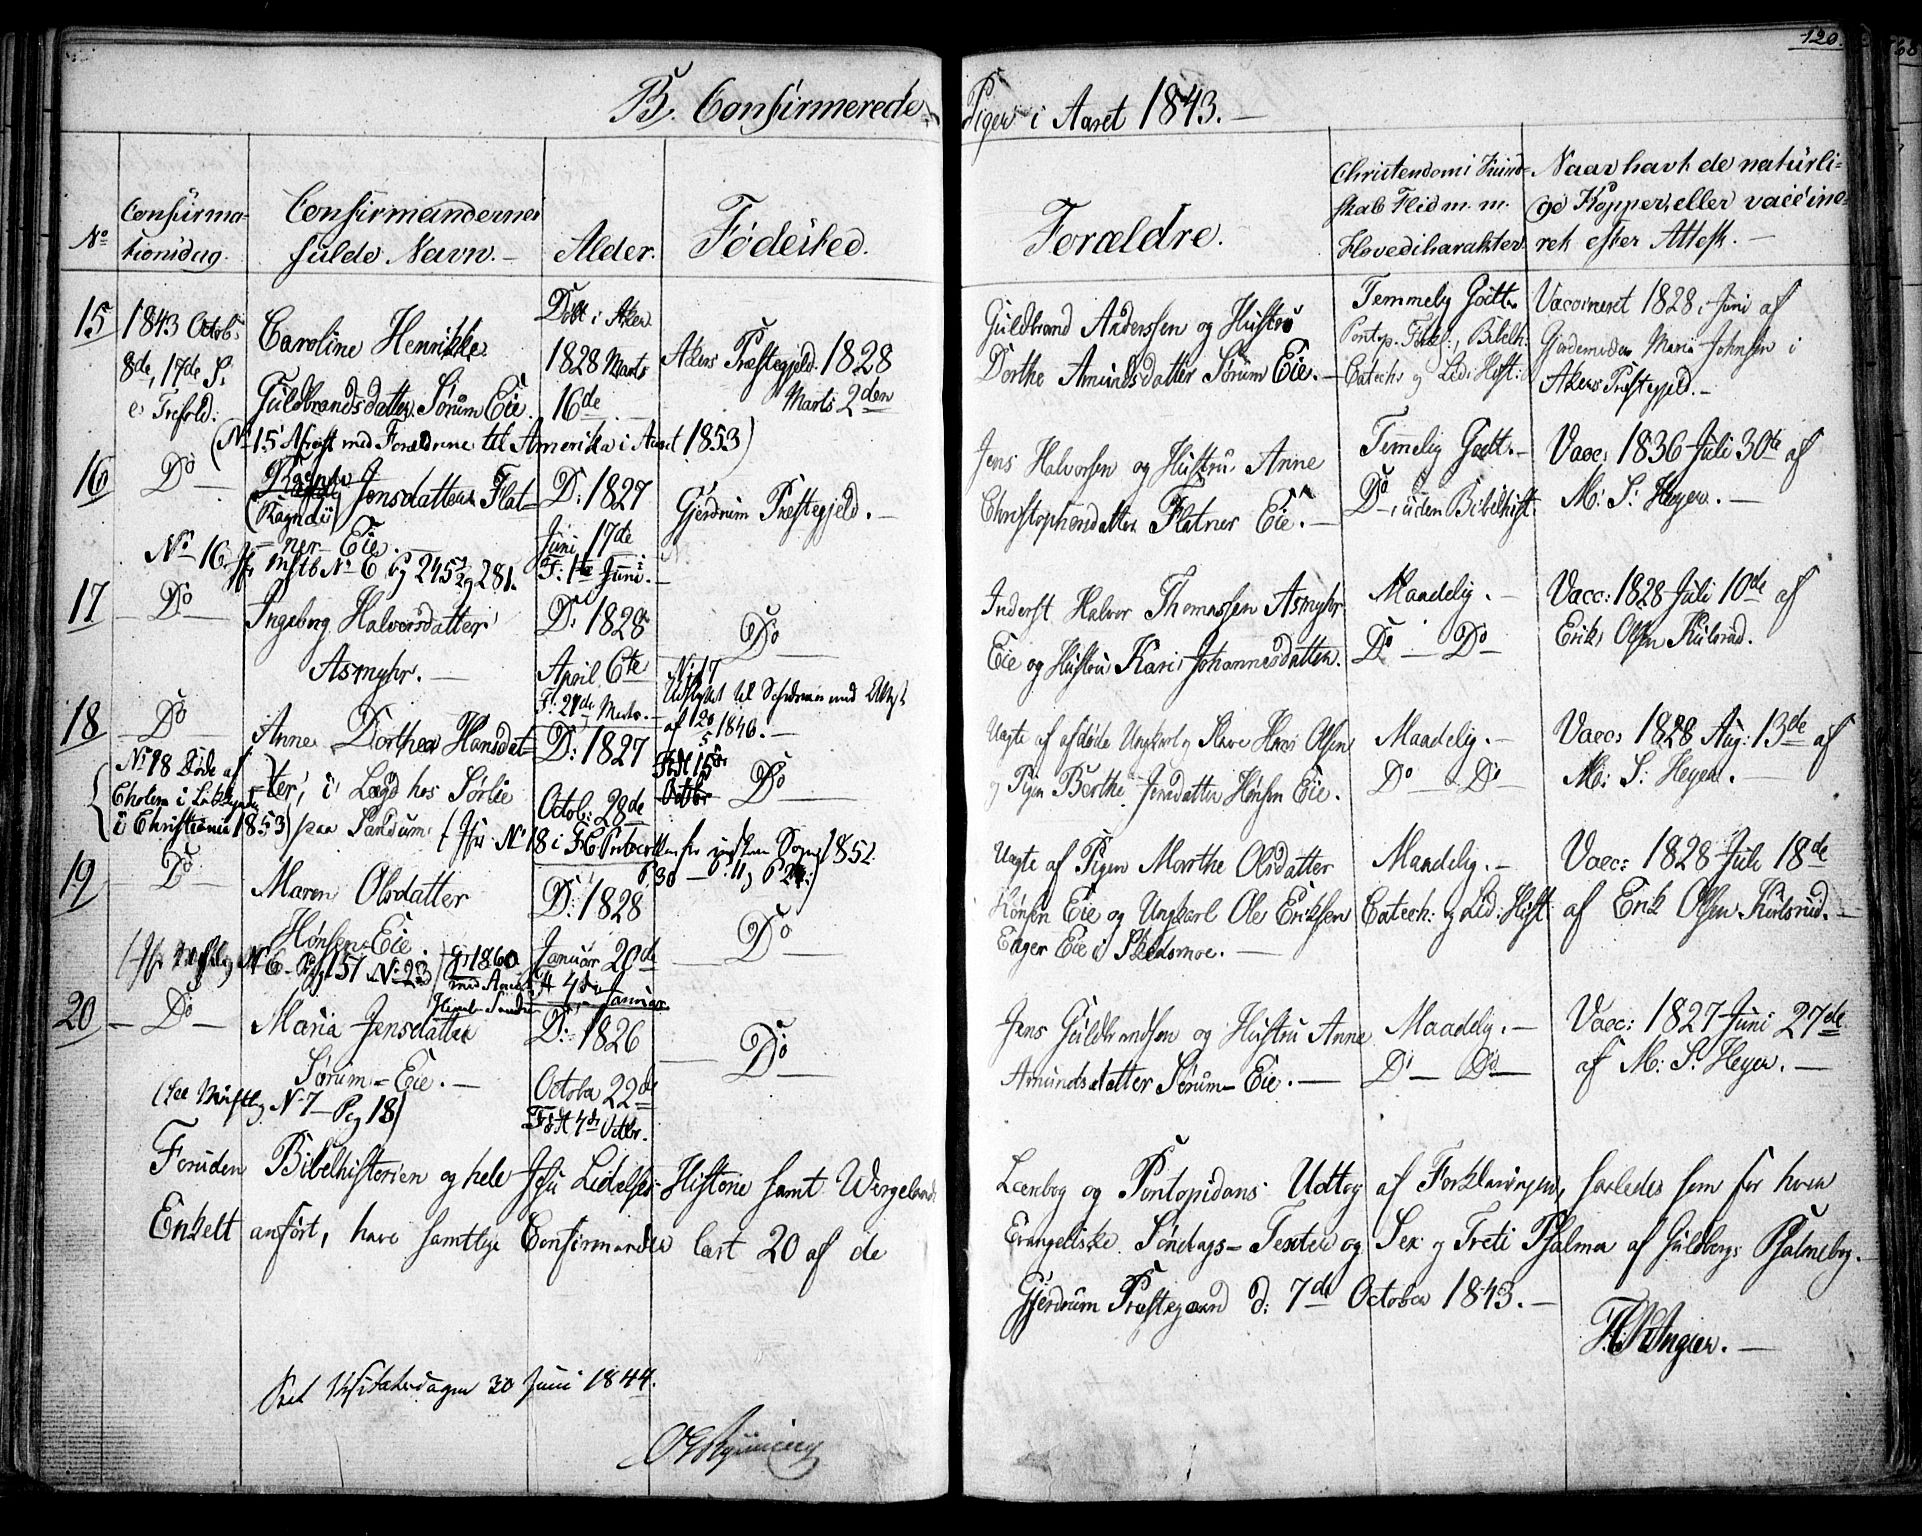 120.
B. Confirmerede Piger i Aaret 1843.
No
Confirmationsdag.
Confirmandernes fulde Navn.
Alder.
Fødested.
Forældre.
Christendoms Kund-
skab Flid m. m.
Hovedcharakter
Naar havt de naturli-
ge Kopper, eller vaccine-
ret efter Attest.
15
1843 Octob:
8de, 17de S.
e. Trefold:
Caroline Henrikke
Guldbrandsdatter Sørum Eie.
Døbt i Aker
1828 Marts
16de
Akers Præstegjeld 1828
Marts 2den
Guldbrand Anderssen og Hustru
Dorthe Amundsdatter Sørum Eie.
Temmelig Godt
Pontop. Forkl:, Bibelh:
Catech: og Lid: Hist:
Vaccineret 1828 i Juni af
Gjordemoder Maria Johnsen i
Akers Præstegjeld.
(No 15 Afreist med Forældrene til Amerika i Aaret 1853)
16
Do
(Ragndi) Jensdatter Flat-
ner Eie.
D: 1827
Juni 17de
F: 1te Juni.
Gjerdrum Præstegjeld.
Jens Halvorsen og Hustru Anne
Christophersdatter Flatner Eie.
Temmelig Godt.
Do, uden Bibelhist.
Vacc: 1836 Juli 30te af
M: S: Heyer.
No 16. Jfr Mstb No 6 Pg 245 og 281.
17
Do
Ingeborg Halvorsdatter
Asmyhr.
D: 1828
April 6te
F. 21de Marts.
Do
Inderst Halvor Thomassen Asmyhr
Eie og Hustru Kari Johannesdatter.
Maadelig.
Do Do
Vacc: 1828 Juli 10de af
Erik Olsen Kulsrud.
No 17
Udflyttet til Sørum med Attest
af 20/5 1846.
18
Do
Anne Dorthea Hansdat-
ter, i Lægd hos Sørlie
paa Sandum
D: 1827
Octob: 28de
Født 15de
Octbr
Do
Uægte af afdøde Ungkarl og Slave Hans Olsen
og Pigen Berthe Jensdatter Hønsen Eie.
Maadelig.
Do Do
Vacc: 1828 Aug: 13de af
M: S: Heyer.
No 18 Døde af
Cholera i
i Christiania 1853)
(Jfr No 18 i 1852.
19
Do
Maren Olsdatter
Hønsen Eie
D: 1828
Januar 20de
Født 4de Januar
Do
Uægte af Pigen Marthe Olsdatter
Hønsen Eie og Ungkarl Ole Eriksen
Enger Eie i Skedsmoe.
Maadelig.
Catech: og Lid: Hist:
Vacc: 1828 Juli 18de
af Erik Olsen Kulsrud.
No 6 Pag 151 No 23
gt 1860
20
Do
Maria Jensdatter
Sørum Eie.
D: 1826
October 22de
Født 4de Octbr.
Do
Jens Guldbrandsen og Hustru Anne
Amundsdatter Sørum Eie.
Maadelig.
Do Do
Vacc: 1827 Juni 27de
af M: S: Heyer.
(See Mnstbg No 7 Pg 18)
Foruden Bibelhistorien og hele Jesu Lidelses Historie samt Wergelands Læsebog og Pontopidans Udtog af Forklaringen, saaledes som for hver
Enkelt anført, have samtlige Confirmander læst 20 af de Evangeliske Søndags-Texter og Sex og Treti Psalmer af Guldbergs Psalmebog.
Gjerdrum Præstegaard d: 7de October 1843.
F. Angier.
Seet Visitatsdagen 30 Juni 1844.